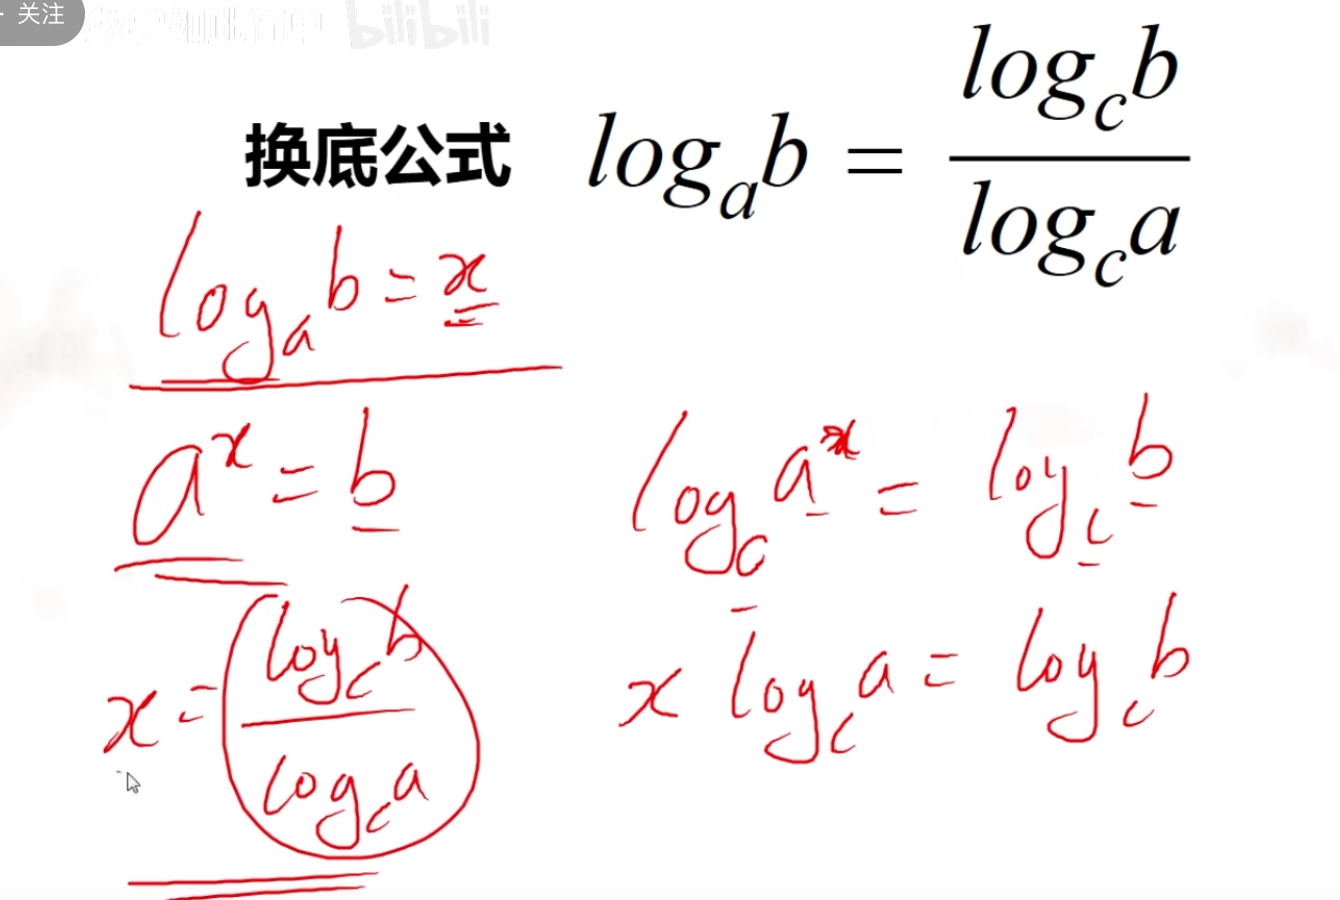 关注
bilibili
换底公式 logₐb = log_c b / log_c a
logₐ b = x
aˣ = b
log_c aˣ = log_c b
x log_c a = log_c b
x = log_c b / log_c a